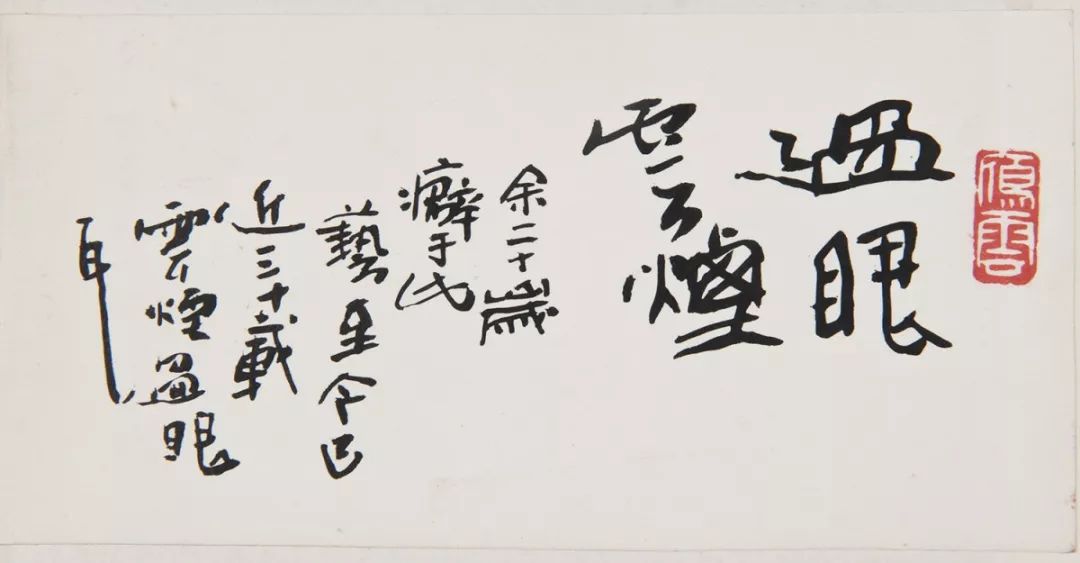 過眼
雲煙
余二十歲
癖于民
藝至今已
近三十載
雲煙過眼
耳